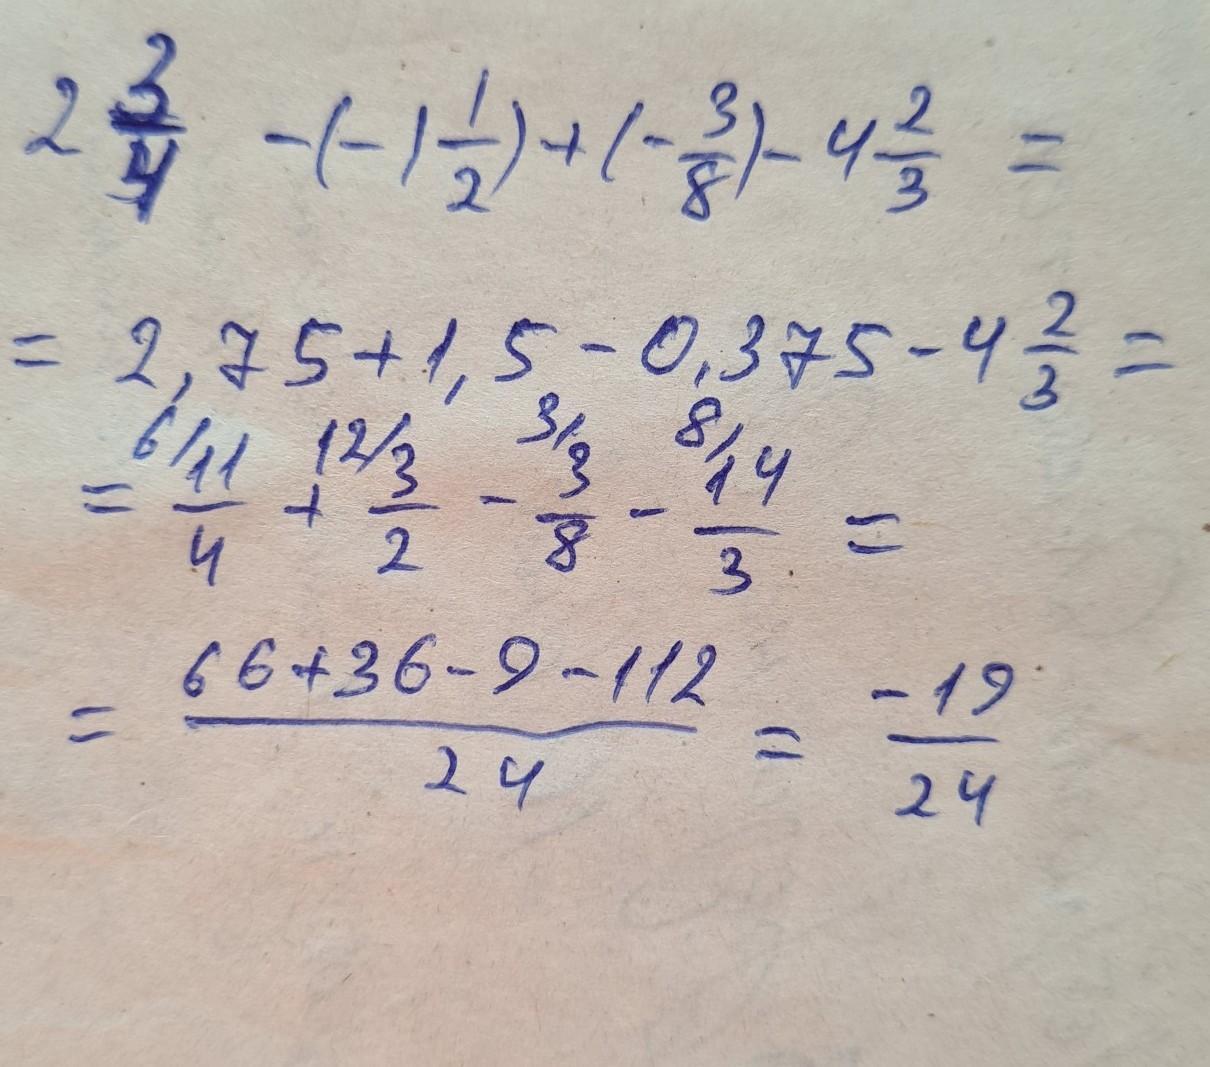 2 3/4 - (-1 1/2) + (- 3/8) - 4 2/3 =
= 2,75 + 1,5 - 0,375 - 4 2/3 =
= 6/ 11/4 + 12/ 3/2 - 3/ 3/8 - 8/ 14/3 =
= 66+36-9-112/24 = -19/24